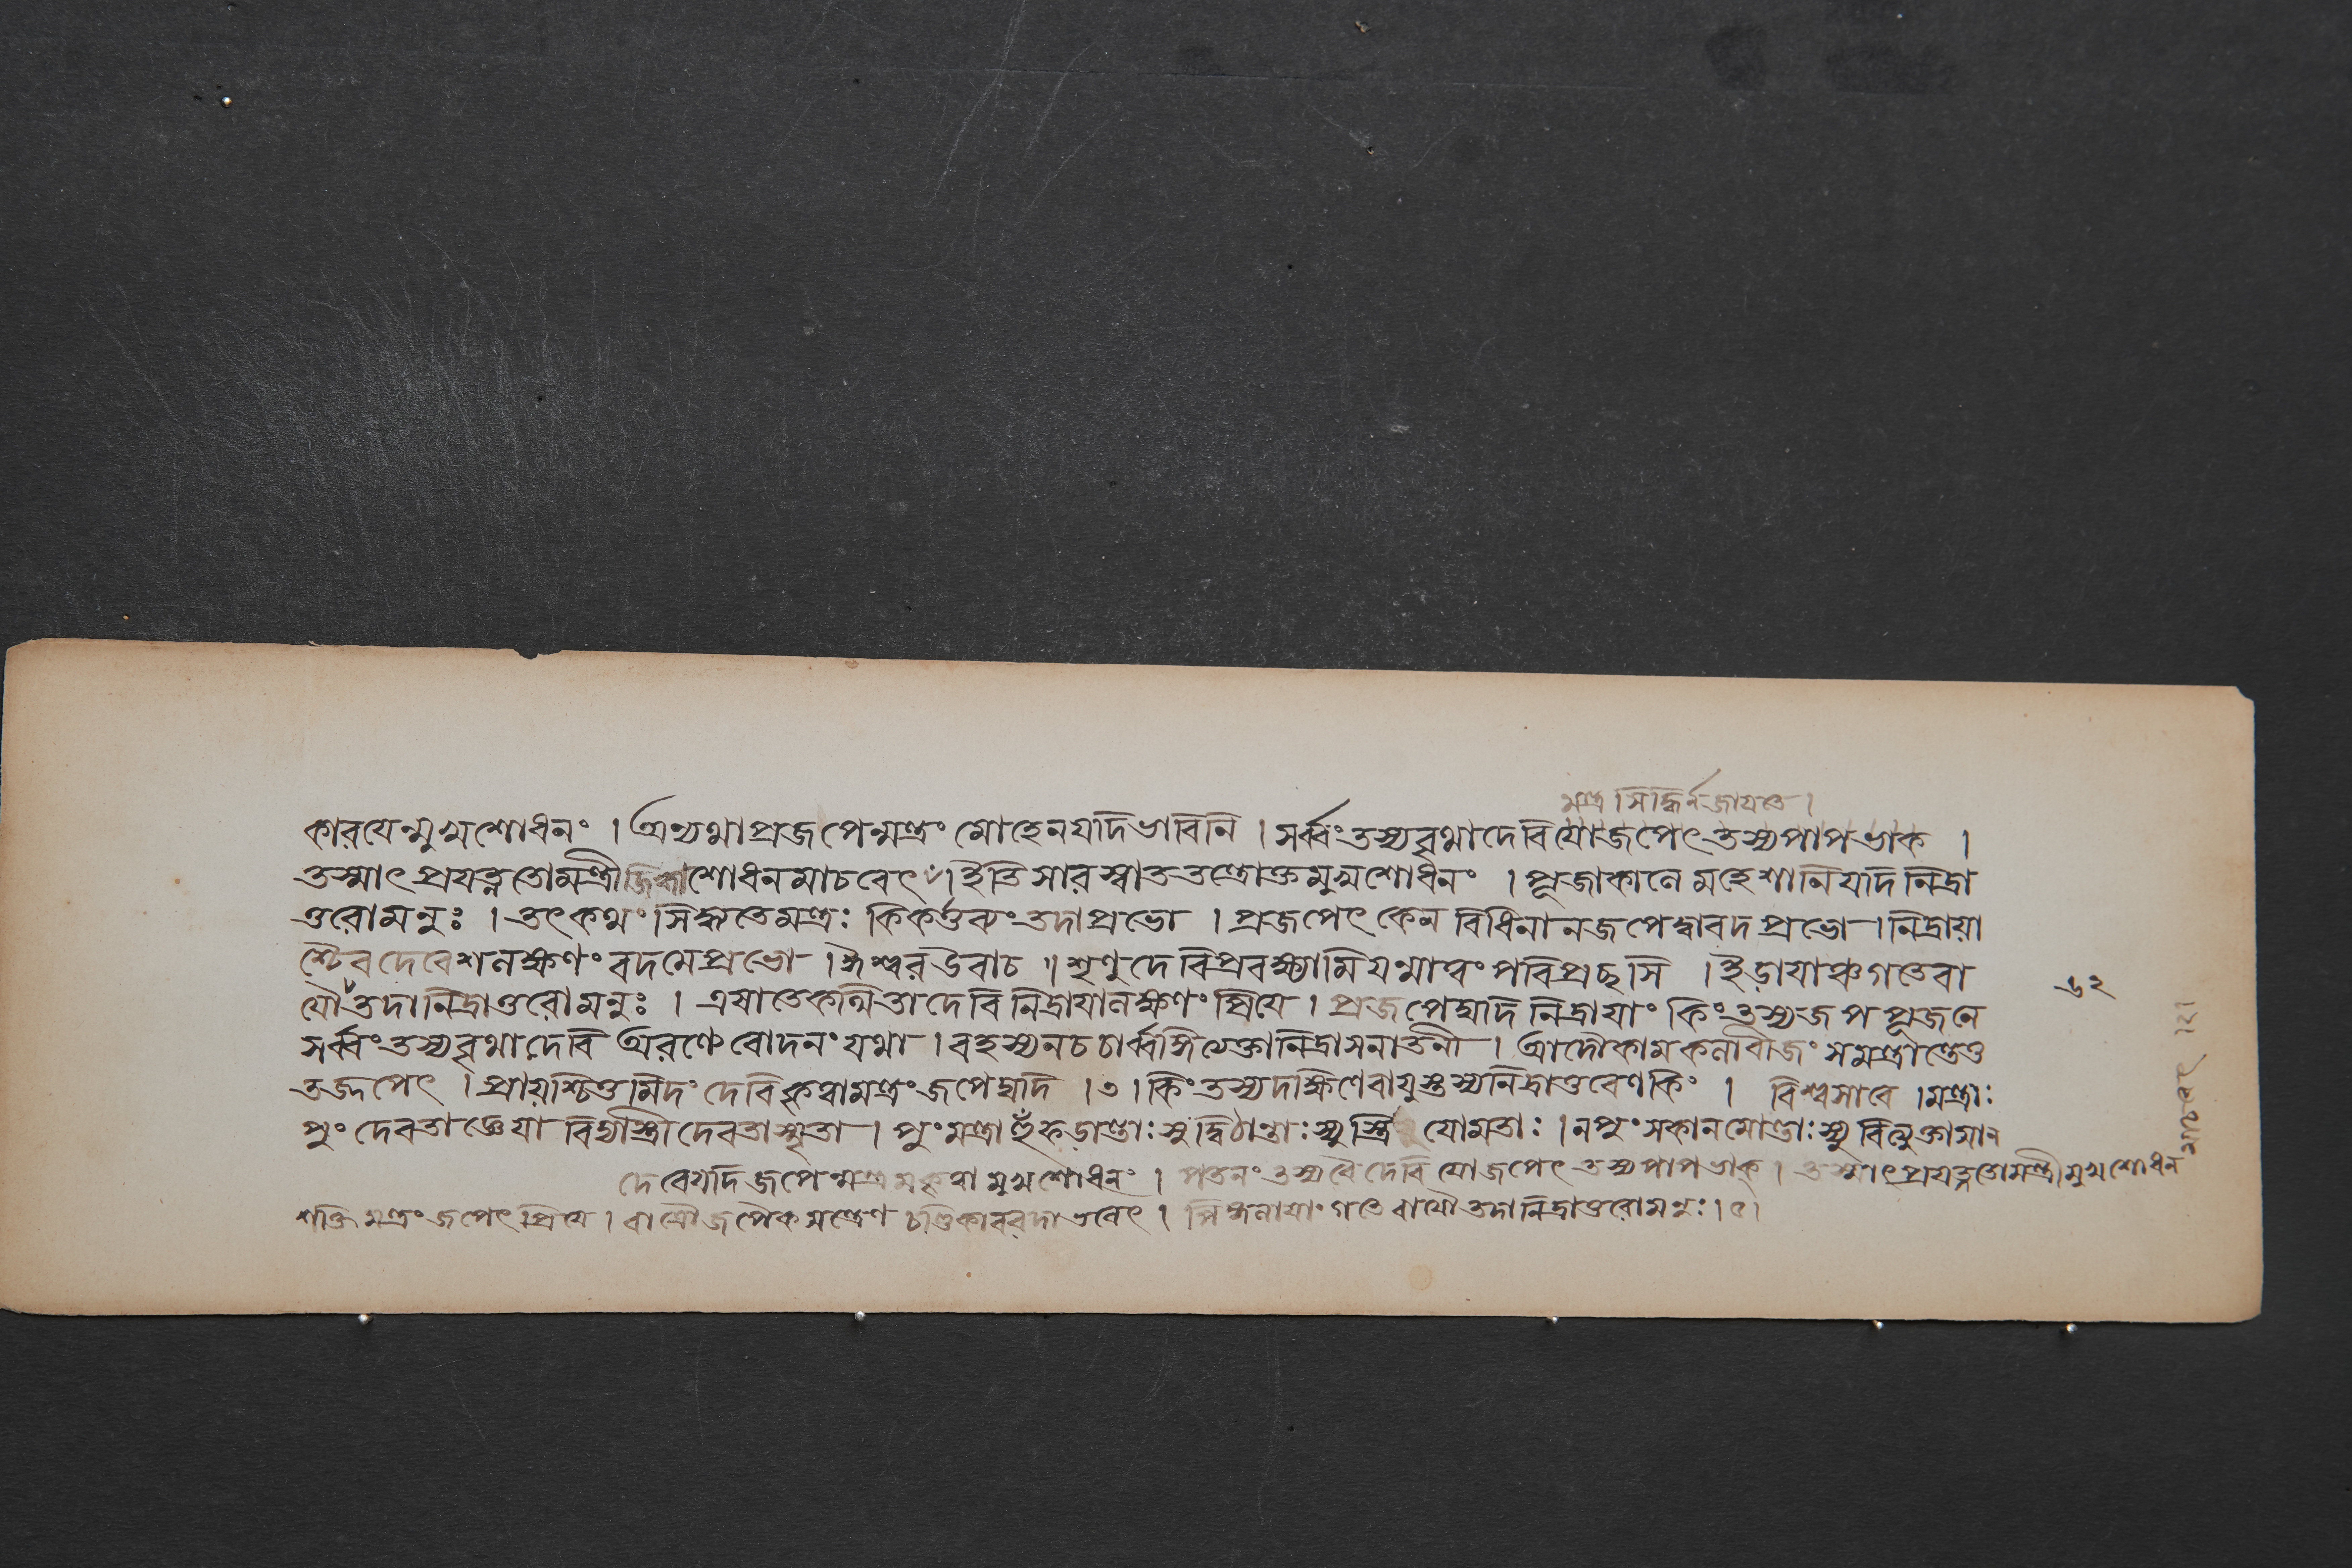 মন্ত্র সিদ্ধির্নজায়তে।
কারয়েন্মুখশোধনং । অন্যথাপ্রজপেন্মন্ত্রং মোহেনযদিভাবিনি । সর্ব্বংতস্যবৃথাদেবি যোজপেৎ তস্যপাপভাক ।
তস্মাৎ প্রযত্নতোমন্ত্রী জিহ্বাশোধনমাচরেৎ ।ইতি সারস্বততন্ত্রোক্তমুখশোধনং । পূজাকালে মহেশানি যদি নিদ্রা
তুরোমনুঃ । তৎকথং সিদ্ধ্যতেমন্ত্রঃ কিংকর্ত্তব্যং তদাপ্রভো । প্রজপেৎ কেন বিধিনা নজপেদ্বাবদ প্রভো । নিদ্রায়া
শ্চৈব দেবেশ লক্ষণং বদমেপ্রভো । ঈশ্বর উবাচ ॥ শৃণুদেবিপ্রবক্ষ্যামি যন্মাত্বং পরিপ্রছসি । ইড়ায়াঞ্চগতেবা
যৌ তদানিদ্রাতুরোমনুঃ । এষাতেকথিতা দেবি নিদ্রায়ালক্ষণং প্রিয়ে । প্রজপেদ্যদি নিদ্রায়াং কিংতস্যজপপূজনে
সর্ব্বংতস্যবৃথাদেবি অরণ্যেরোদনংযথা । রহস্যনচচার্ব্বঙ্গি থেক্তানিদ্রাসনাতনী । আদৌকামকলাবীজং সমন্ত্রান্তেতু
তজ্জপেৎ । প্রায়শ্চিত্তমিদং দেবি কৃত্বামন্ত্রং জপেদ্যদি ।৩। কিং তস্যদক্ষিণেবায়ুস্তস্যনিদ্রাতুরেণকিং । বিশ্বসারে ।মন্ত্রাঃ
পুং দেবতাজ্ঞেয়া বিদ্যাস্ত্রীদেবতাস্মৃতা । পুংমন্ত্রা হুঁফড়ান্তাঃস্যু দ্বিঠান্তাঃস্যুস্ত্রি য়োমতাঃ । নপুংসকানমোন্তাঃস্যু
দেবেযদিজপেন্মন্ত্রমকৃত্বা মুখশোধনং । পতনং তস্যবৈদেবি যোজপেৎ তস্যপাপভাক্ । তস্মাৎপ্রযত্নতোমন্ত্রীমুখশোধন
মাচরেৎ ।২।
শক্তিমন্ত্রং জপেৎ প্রিয়ে । বা জপৈক মন্ত্রেণ চণ্ডিকাবরদাভবেৎ । পিঙ্গলায়াং গতে বায়ৌ তদানিদ্রাতুরোমনুঃ ।৫।
৬২